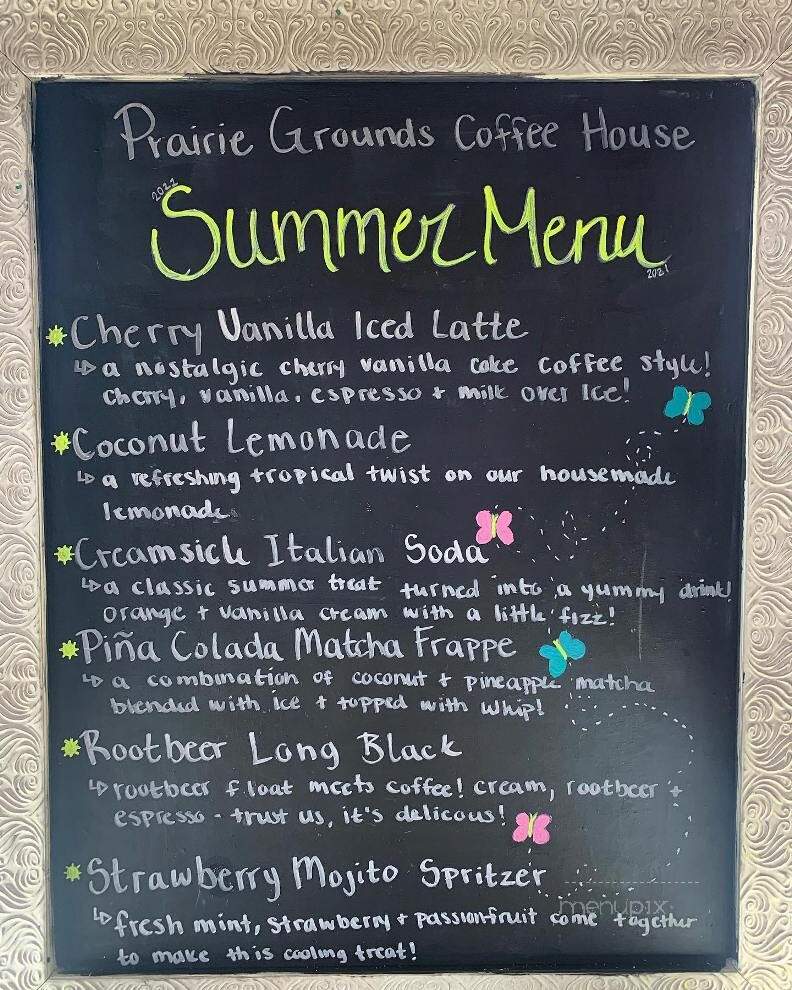 Prairie Grounds Coffee House
2022
Summer Menu
2021
Cherry Vanilla Iced Latte
↳ a nostalgic cherry vanilla coke coffee style!
cherry, vanilla, espresso + milk over ice!
Coconut Lemonade
↳ a refreshing tropical twist on our housemade
lemonade
Creamsicle Italian Soda
↳ a classic summer treat turned into a yummy drink!
orange + vanilla cream with a little fizz!
Piña Colada Matcha Frappe
↳ a combination of coconut + pineapple matcha
blended with ice + topped with whip!
Rootbeer Long Black
↳ rootbeer float meets coffee! cream, rootbeer +
espresso - trust us, it's delicous!
Strawberry Mojito Spritzer
menupix
↳ fresh mint, strawberry + passionfruit come together
to make this cooling treat!